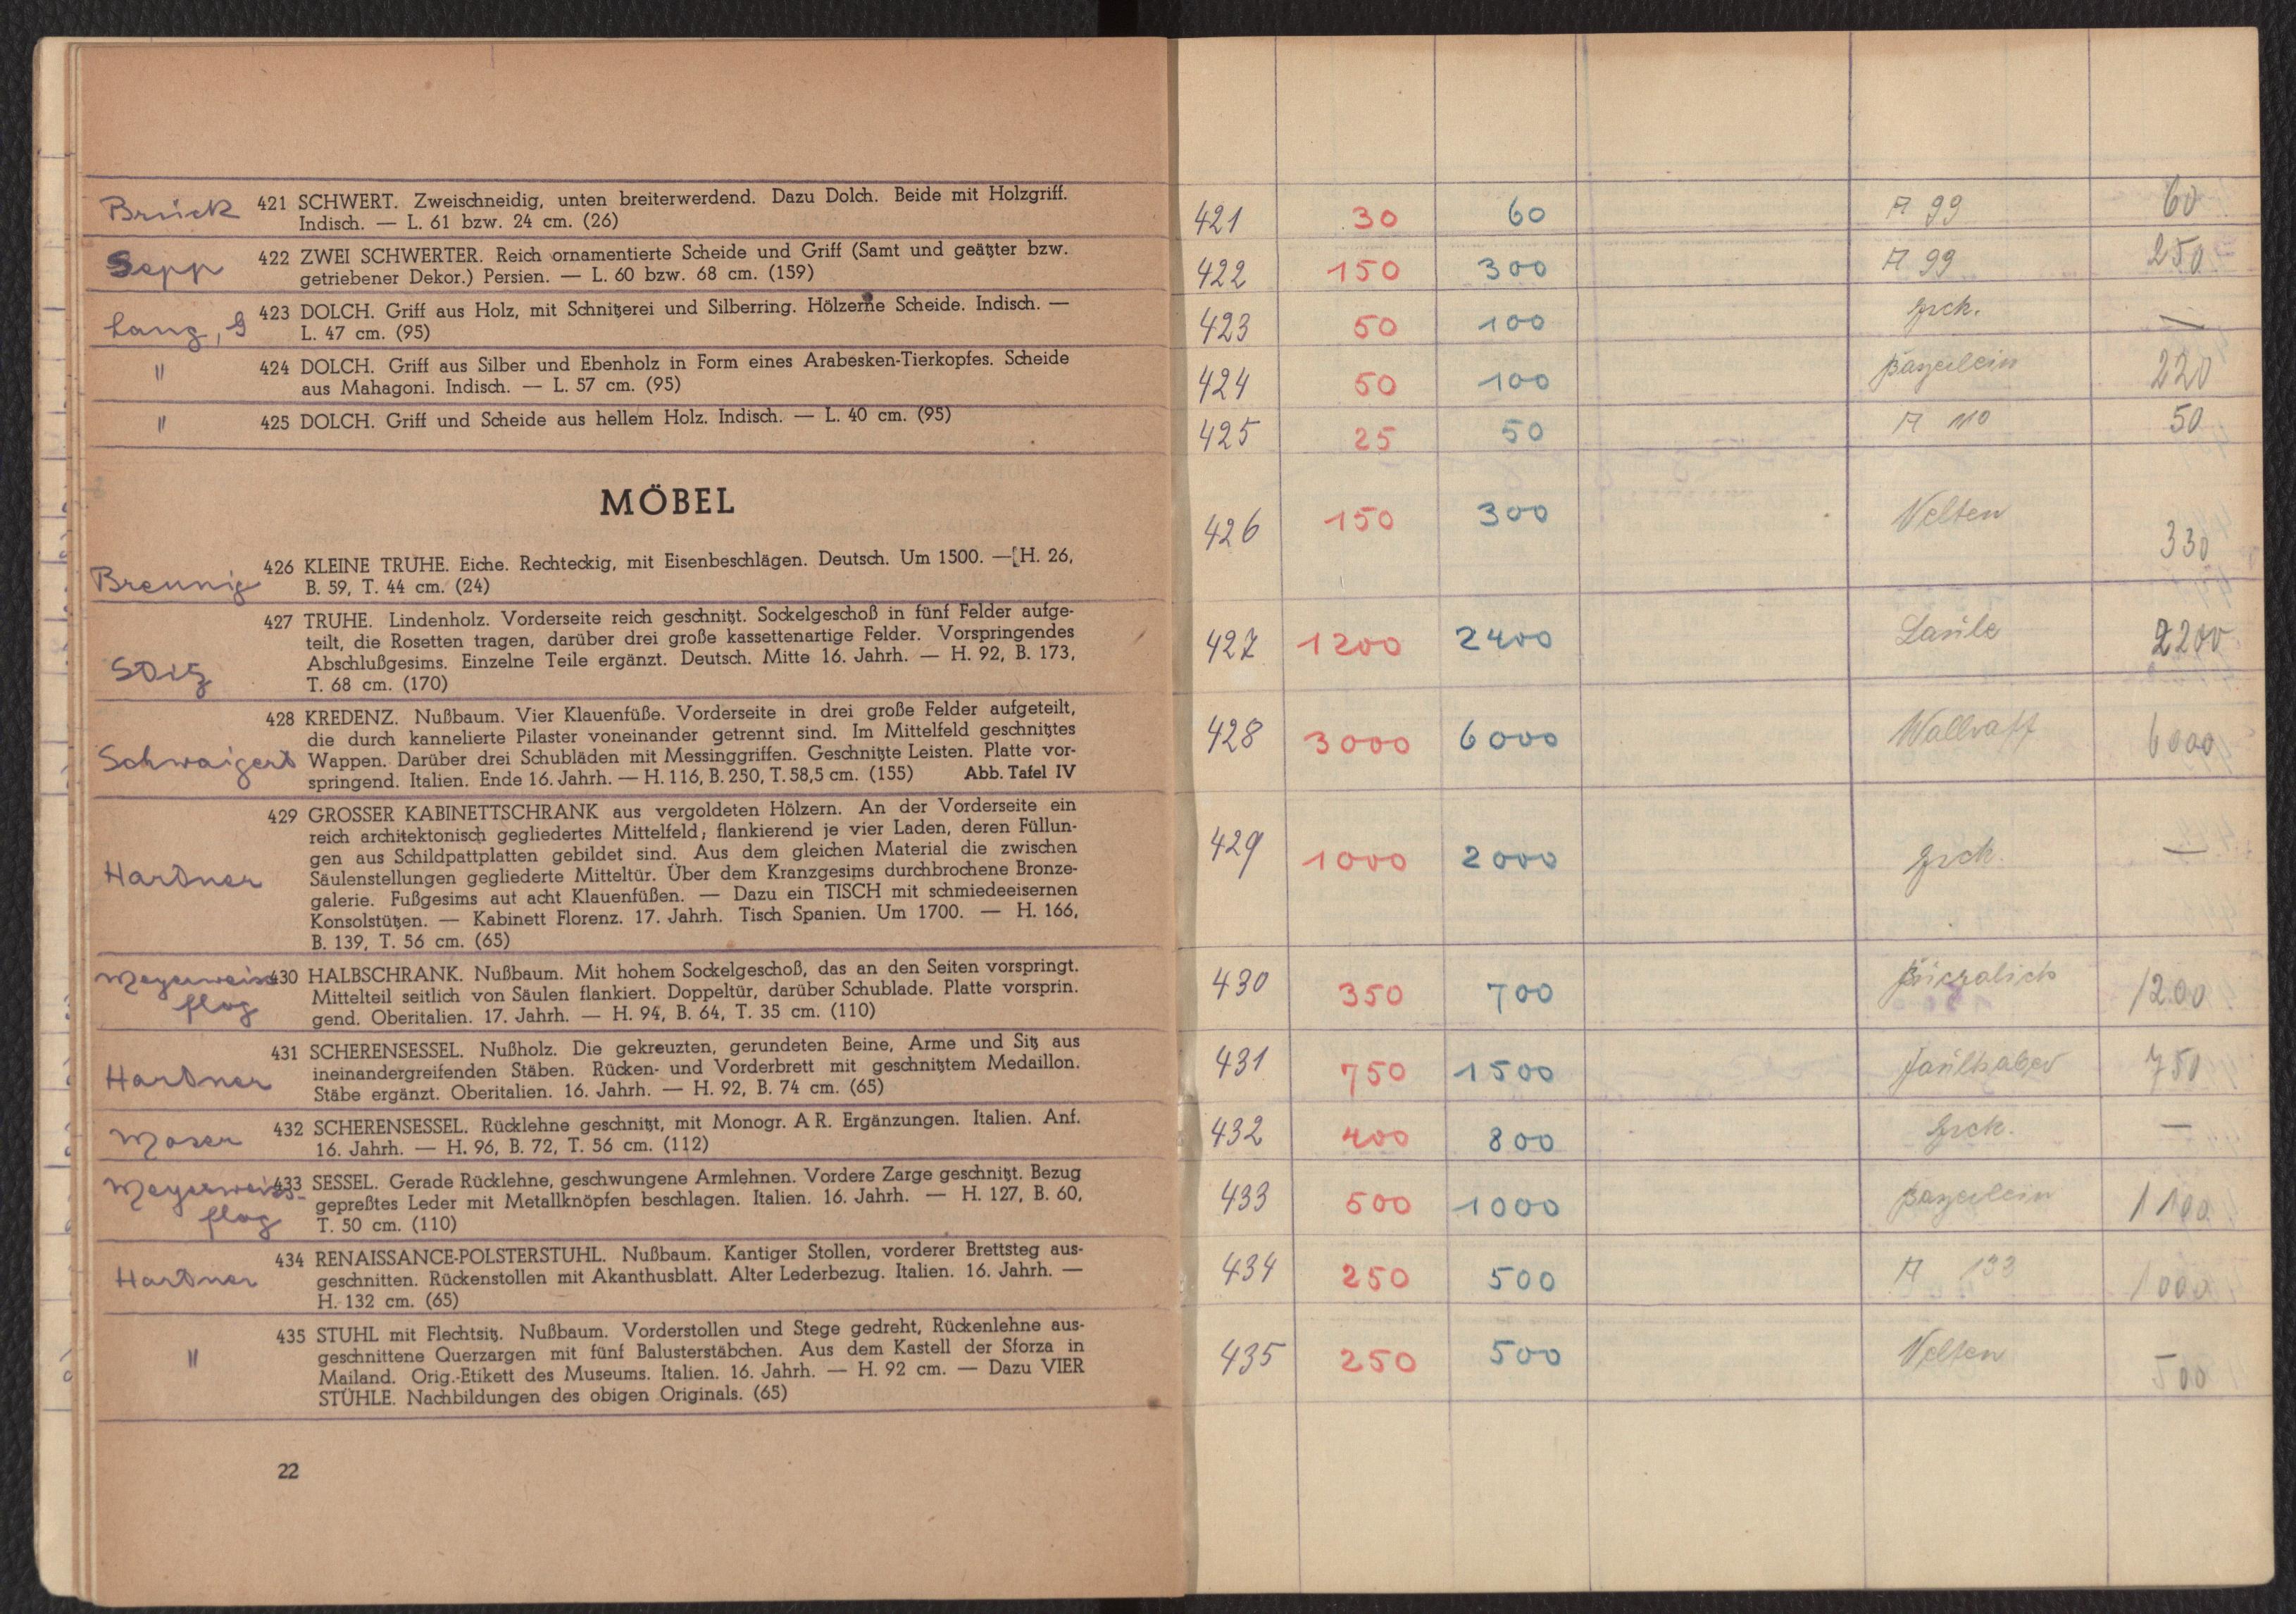 Brück
421 SCHWERT. Zweischneidig, unten breiterwerdend. Dazu Dolch. Beide mit Holzgriff.
Indisch. — L. 61 bzw. 24 cm. (26)
Sepp
422 ZWEI SCHWERTER. Reich ornamentierte Scheide und Griff (Samt und geätzter bzw.
getriebener Dekor.) Persien. — L. 60 bzw. 68 cm. (159)
Lang, G
423 DOLCH. Griff aus Holz, mit Schnitzerei und Silberring. Hölzerne Scheide. Indisch. —
L. 47 cm. (95)
"
424 DOLCH. Griff aus Silber und Ebenholz in Form eines Arabesken-Tierkopfes. Scheide
aus Mahagoni. Indisch. — L. 57 cm. (95)
"
425 DOLCH. Griff und Scheide aus hellem Holz. Indisch. — L. 40 cm. (95)
MÖBEL
Brennig
426 KLEINE TRUHE. Eiche. Rechteckig, mit Eisenbeschlägen. Deutsch. Um 1500. — H. 26,
B. 59, T. 44 cm. (24)
427 TRUHE. Lindenholz. Vorderseite reich geschnitzt. Sockelgeschoß in fünf Felder aufge-
teilt, die Rosetten tragen, darüber drei große kassettenartige Felder. Vorspringendes
Abschlußgesims. Einzelne Teile ergänzt. Deutsch. Mitte 16. Jahrh. — H. 92, B. 173,
T. 68 cm. (170)
Schwaigert
428 KREDENZ. Nußbaum. Vier Klauenfüße. Vorderseite in drei große Felder aufgeteilt,
die durch kannelierte Pilaster voneinander getrennt sind. Im Mittelfeld geschnitztes
Wappen. Darüber drei Schubläden mit Messinggriffen. Geschnitzte Leisten. Platte vor-
springend. Italien. Ende 16. Jahrh. — H. 116, B. 250, T. 58,5 cm. (155) Abb. Tafel IV
Hardner
429 GROSSER KABINETTSCHRANK aus vergoldeten Hölzern. An der Vorderseite ein
reich architektonisch gegliedertes Mittelfeld; flankierend je vier Laden, deren Füllun-
gen aus Schildpattplatten gebildet sind. Aus dem gleichen Material die zwischen
Säulenstellungen gegliederte Mitteltür. Über dem Kranzgesims durchbrochene Bronze-
galerie. Fußgesims aut acht Klauenfüßen. — Dazu ein TISCH mit schmiedeeisernen
Konsolstützen. — Kabinett Florenz. 17. Jahrh. Tisch Spanien. Um 1700. — H. 166,
B. 139, T. 56 cm. (65)
Meyerweiss
flog
430 HALBSCHRANK. Nußbaum. Mit hohem Sockelgeschoß, das an den Seiten vorspringt.
Mittelteil seitlich von Säulen flankiert. Doppeltür, darüber Schublade. Platte vorsprin.
gend. Oberitalien. 17. Jahrh. — H. 94, B. 64, T. 35 cm. (110)
Hardner
431 SCHERENSESSEL. Nußholz. Die gekreuzten, gerundeten Beine, Arme und Sitz aus
ineinandergreifenden Stäben. Rücken- und Vorderbrett mit geschnitztem Medaillon.
Stäbe ergänzt. Oberitalien. 16. Jahrh. — H. 92, B. 74 cm. (65)
Moser
432 SCHERENSESSEL. Rücklehne geschnitzt, mit Monogr. A R. Ergänzungen. Italien. Anf.
16. Jahrh. — H. 96, B. 72, T. 56 cm. (112)
Meyerweiss-
flog
433 SESSEL. Gerade Rücklehne, geschwungene Armlehnen. Vordere Zarge geschnitzt. Bezug
gepreßtes Leder mit Metallknöpfen beschlagen. Italien. 16. Jahrh. — H. 127, B. 60,
T. 50 cm. (110)
Hardner
434 RENAISSANCE-POLSTERSTUHL. Nußbaum. Kantiger Stollen, vorderer Brettsteg aus-
geschnitten. Rückenstollen mit Akanthusblatt. Alter Lederbezug. Italien. 16. Jahrh. —
H. 132 cm. (65)
"
435 STUHL mit Flechtsitz. Nußbaum. Vorderstollen und Stege gedreht, Rückenlehne aus-
geschnittene Querzargen mit fünf Balusterstäbchen. Aus dem Kastell der Sforza in
Mailand. Orig.-Etikett des Museums. Italien. 16. Jahrh. — H. 92 cm. — Dazu VIER
STÜHLE. Nachbildungen des obigen Originals. (65)
22
421 30 60 A 99 60
422 150 300 A 99 250
423 50 100 zrck. —
424 50 100 Bayerlein 220
425 25 50 A 110 50
426 150 300 Velten 330
427 1200 2400 Laule 2200
428 3000 6000 Wallraff 6000
429 1000 2000 zrck. —
430 350 700 1200
431 750 1500 Faulhaber 750
432 400 800 zrck. —
433 500 1000 Bayerlein 1100
434 250 500 A 133 1000
435 250 500 Velten 500